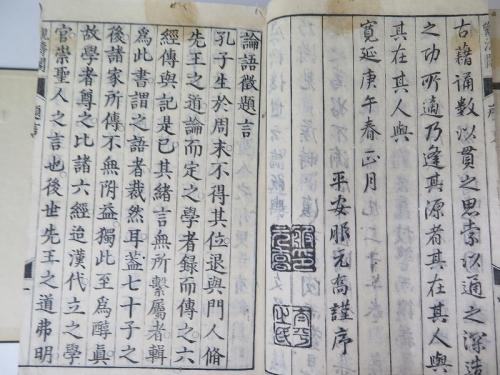 古籍誦数以貫之思索以通之深造
之功所適乃逢其源者其在其人與
其在其人與
寬延庚午春正月
平安服元喬謹序
論語徵題言
孔子生於周末不得其位退與門人脩
先王之道論而定之學者錄而傳之六
經傳與記是已其緒言無所繫屬者輯
為此書謂之語者裁然耳蓋七十子之
後諸家所傳不無附益獨此至為醇眞
故學者尊之比諸六經迨漢代立之學
官崇聖人之言也後世先王之道弗明
題言